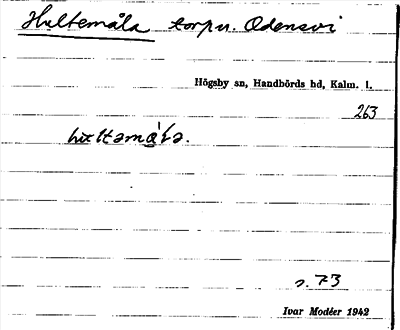 Hultemåla torpn. Odensvi
Högsby sn, Handbörds hd, Kalm. l.
263
s. 73
Ivar Modéer 1942